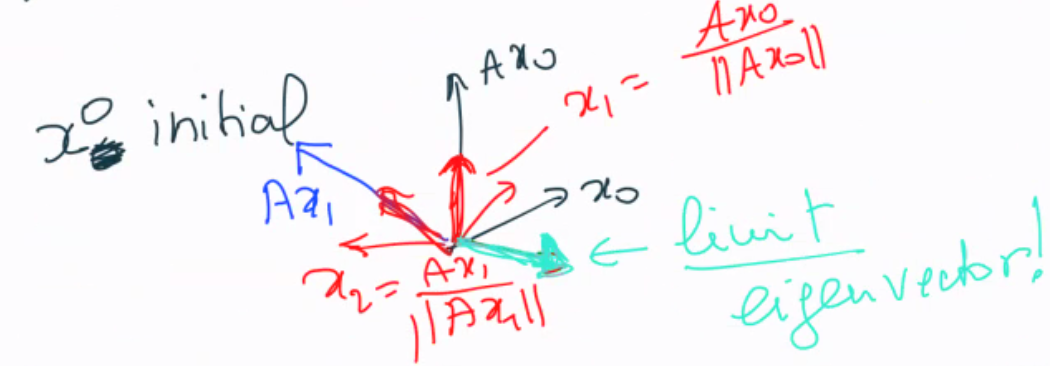 x⁰ initial
Ax₀
x₁ = Ax₀ / ||Ax₀||
Ax₁
x₀
x₂ = Ax₁ / ||Ax₁||
← limit
eigenvector!